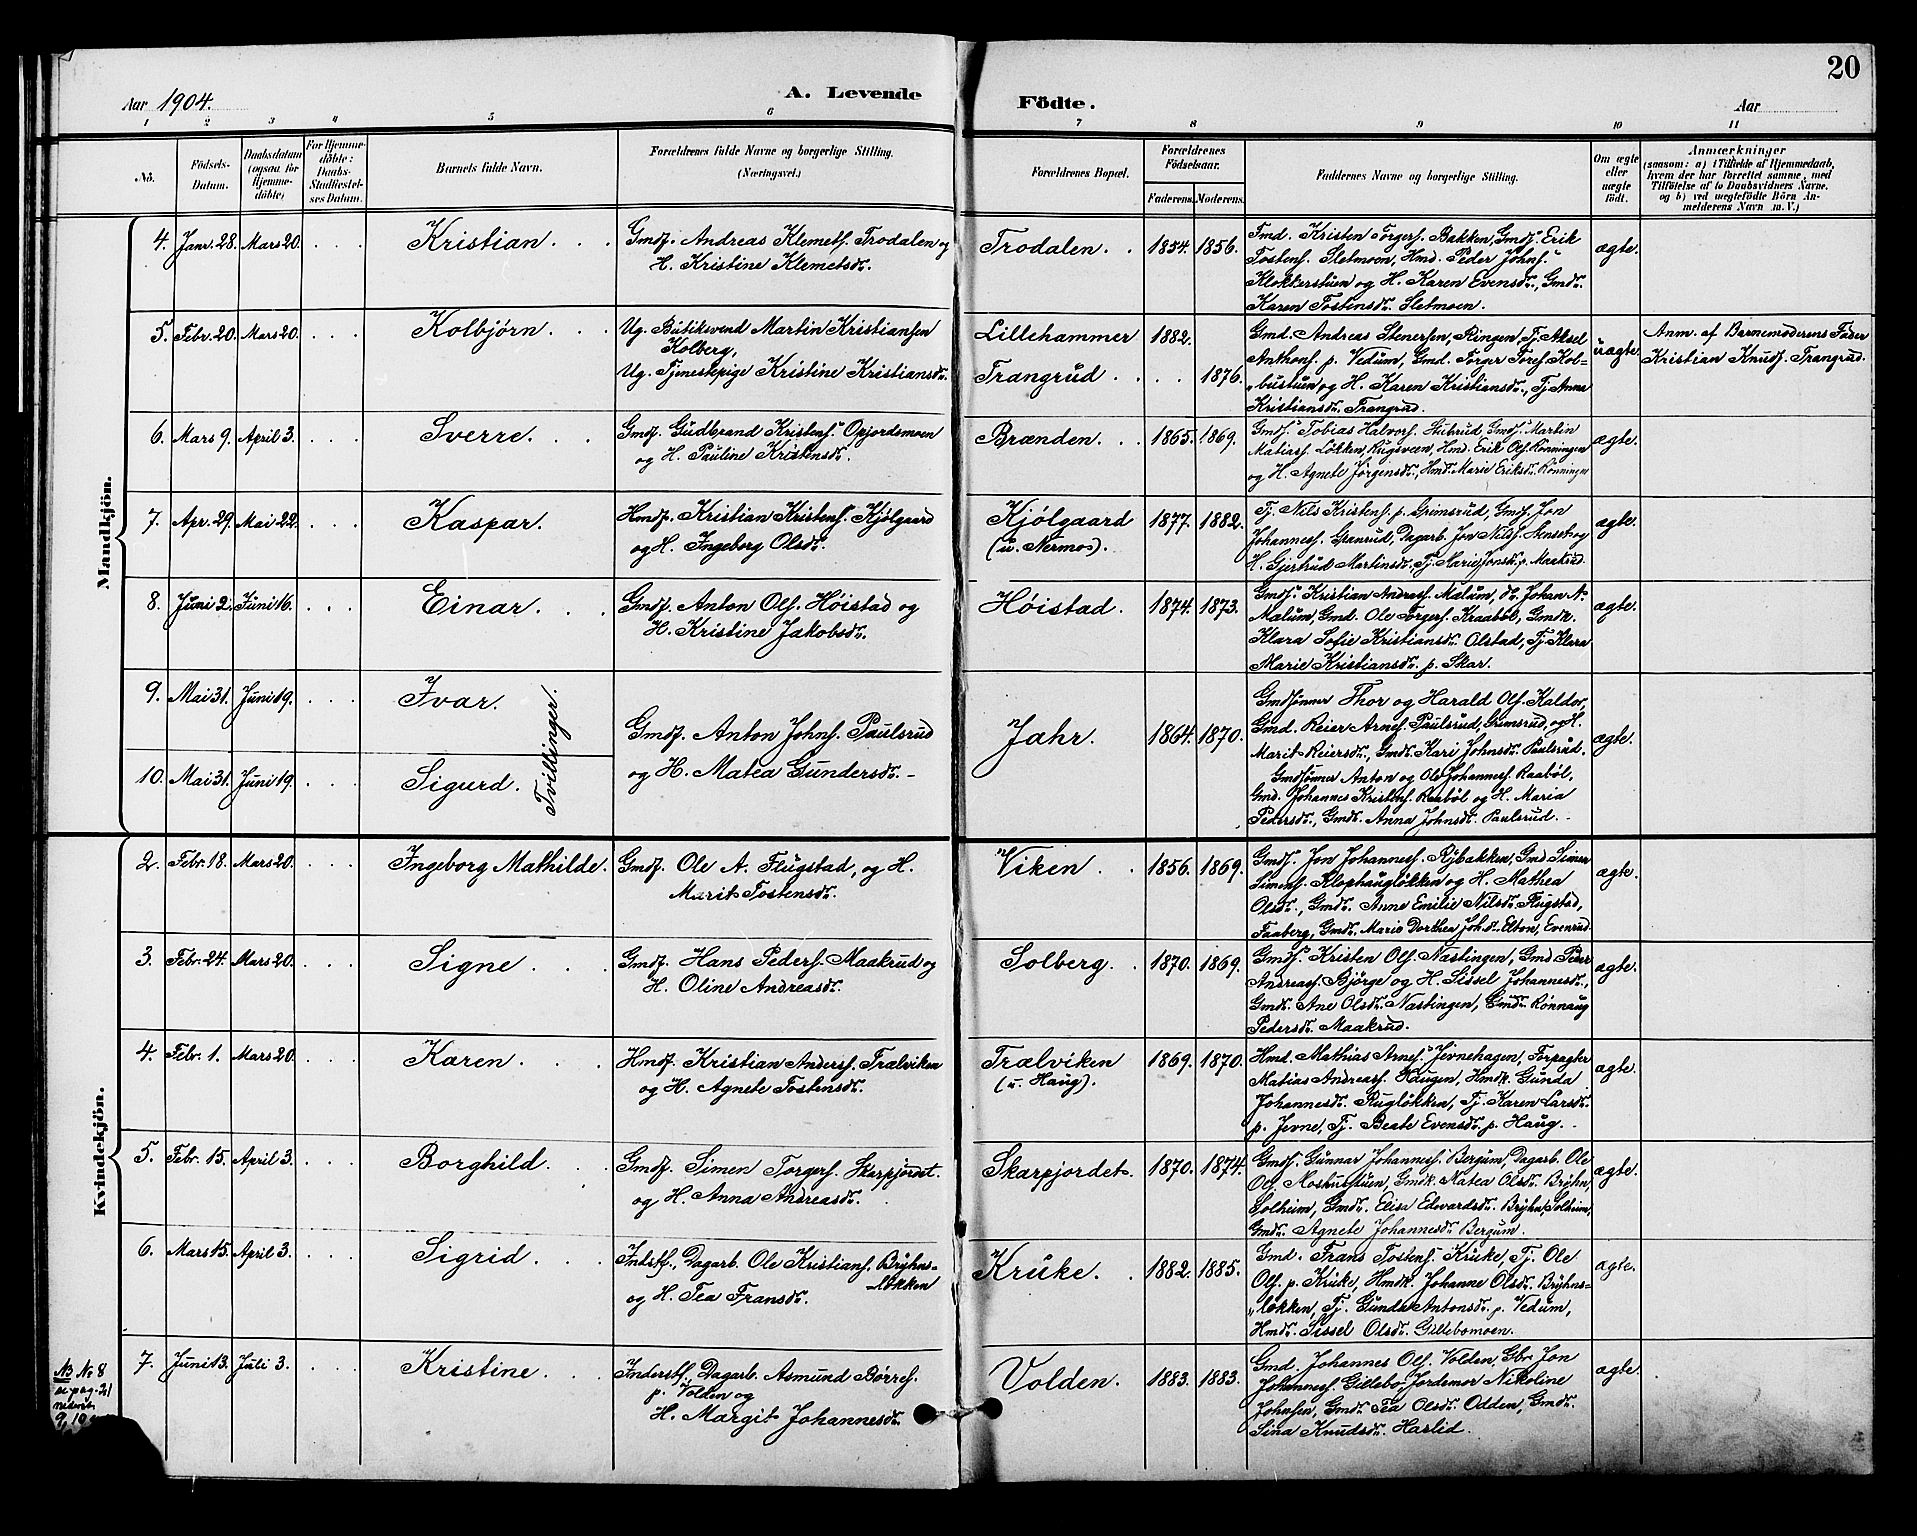 20
Aar 1904.
A. Levende
Födte.
Aar
1 2 3 4 5 6 7 8 9 10 11
No.
Födsels-Datum.
Daabsdatum (ogsaa for Hjemmedöbte)
For Hjemmedöbte: Daabs-Stadfæstelses Datum.
Barnets fulde Navn.
Forældrenes fulde Navne og borgerlige Stilling.
(Næringsvei.)
Forældrenes Bopæl.
Forældrenes Födselsaar.
Faderens. Moderens.
Faddernes Navne og borgerlige Stilling.
Om ægte eller uægte födt.
Anmærkninger
(saasom: a) i Tilfælde af Hjemmedaab,
hvem der har forrettet samme, med
Tilföielse af to Daabsvidners Navne.
og b) ved uægtefödte Börn Anmelderens Navn m. V.)
Mandkjön.
4. Janr. 28. Mars 20. Kristian. Gmdf. Andreas Klemets. Trodalen og
H. Kristine Klemetsdr.
Trodalen. 1854. 1856.
Fmd. Kristen Torgers. Bakken, Gmdf. Erik
Tostens. Sletmoen, Hmd. Peder Johns.
Klokkerstuen og H. Karen Evensdr., Gmdr.
Karen Tostensdr. Sletmoen.
ægte.
5. Febr. 20. Mars 20. Kolbjørn. Ug. Butiksvend Martin Kristiansen
Kolberg,
Ug. Tjenestepige Kristine Kristiansdr.
Lillehammer 1882.
Trangrud 1876.
Gmd. Andreas Stenersen, Ringen, Tj. Aksel
Anthons. p. Vedum, Gmd. Torger Tores. Kol-
bustuen og H. Karen Kristiansdr., Tj. Anna
Kristiansdr. Trangrud.
uægte.
Anm. af Barnemoderens Fader
Kristian Knuds. Trangrud.
6. Mars 9. April 3. Sverre. Gmdf. Gudbrand Kristens. Opjordsmoen
og H. Pauline Kristensdr.
Brænden. 1865. 1869.
Gmdf. Tobias Halvors. Stubrud, Gmdf. Martin
Matiass. Løkken, Rugsveen, Hmd. Erik Ols. Rønningen
og H. Agnete Jørgensdr., Hmdr. Marie Eriksdr. Rønningen
ægte.
7. Apr. 29. Mai 22. Kaspar. Hmdf. Kristian Kristens. Kjølgaard
og H. Ingeborg Olsdr.
Kjølgaard
(u. Nermo). 1877. 1882.
Tj. Nils Kristens. p. Grimsrud, Gmdf. Jon
Johanness. Granrud, Dagarb. Jon Nilss. Stenset og
H. Gjertrud Martinsdr., Tj. Marie Jonsdr. p. Maakrud.
ægte.
8. Juni 2. Juni 16. Einar. Gmdf. Anton Ols. Høistad og
H. Kristine Jakobsdr.
Høistad. 1874. 1873.
Gmdf. Kristian Andreas. Mælum, do. Johan N.
Mælum, Gmd. Ole Torgers. Kraabøl, Gmdk.
Klara Sofie Kristiansdr. Olstad, Tj. Klara
Marie Kristiansdr. p. Skar.
ægte.
9. Mai 31. Juni 19. Ivar.
10. Mai 31. Juni 19. Sigurd.
Tvillinger.
Gmdf. Anton Johns. Paulsrud
og H. Matea Gundersdr.
Jahr. 1864. 1870.
Gmdsønner Thor og Harald Ols. Kaldor,
Gmd. Reier Arnes. Paulsrud, Grimsrud, og H.
Marit Reiersdr., Gmdr. Kari Johnsdr. Paulsrud.
Gmdsønner Anton og Ole Johanness. Raabøl,
Gmd. Johannes Kristens. Raabøl og H. Maria
Pedersdr., Gmdr. Anna Johnsdr. Paulsrud.
ægte.
Kvindekjön.
2. Febr. 18. Mars 20. Ingeborg Mathilde. Gmdf. Ole A. Flugstad, og H.
Marit Tostensdr.
Viken. 1856. 1869.
Gmdf. Jon Johanness. Rybakken, Gmd. Simen
Simens. Klophaugløkken og H. Mathea
Olsdr., Gmdr. Anne Emilie Nilsdr. Flugstad,
Faaberg, Gmdr. Marie Dorthea Joh.dr. Elton, Evenrud.
ægte.
3. Febr. 24. Mars 20. Signe. Gmdf. Hans Peders. Maakrud og
H. Oline Andreasdr.
Solberg. 1870. 1869.
Gmdf. Kristen Ols. Næstingen, Gmd. Peder
Andreass. Bjørge og H. Sissel Johannesdr.,
Gmdr. Ane Olsdr. Næstingen, Gmdr. Rønnaug
Pedersdr. Maakrud.
ægte.
4. Febr. 1. Mars 20. Karen. Hmdf. Kristian Anders. Trælviken
og H. Agnete Tostensdr.
Trælviken
(u. Haug). 1869. 1870.
Hmd. Mathias Arnes. Jevnehagen, Forpagter
Matias Andreass. Haugen, Hmdk. Gunda
Johannesdr. Rugløkken, Tj. Karen Larsdr.
p. Jevne, Tj. Beate Evensdr. p. Haug.
ægte.
5. Febr. 15. April 3. Borghild. Gmdf. Simen Torgers. Skarpjordet.
og H. Anna Andreasdr.
Skarpjordet. 1870. 1874.
Gmdf. Gunnar Johanness. Bergum, Dagarb. Ole
Ols. Moshusstuen, Gmdk. Matea Olsdr. Bryhn,
Solheim, Gmdr. Elisa Edevardsdr. Bryhn, Solheim,
Gmdr. Agnete Johannesdr. Bergum.
ægte.
6. Mars 15. April 3. Sigrid. Indstf., Dagarb. Ole Kristians. Bryhns-
løkken
og H. Tea Fransdr.
Kruke. 1882. 1885.
Gmd. Frans Tostens. Kruke, Tj. Ole
Ols. p. Kruke, Hmdk. Johanne Olsdr. Bryhns-
løkken, Tj. Gunda Antonsdr. p. Vedum,
Hmdr. Sissel Olsdr. Gillebomoen.
ægte.
7. Juni 13. Juli 3. Kristine. Inderstf., Dagarb. Asmund Børres.
p. Volden og
H. Margit Johannesdr.
Volden. 1883. 1883.
Gmd. Johannes Ols. Volden, Gbr. Jon
Johanness. Gillebo, Jordemor Nikoline
Johnsen, Gmdr. Tea Olsdr. Odden, Gmdr.
Sina Knudsdr. Harlid.
ægte.
NB No 8
se pag. 21
nederst
9, 10